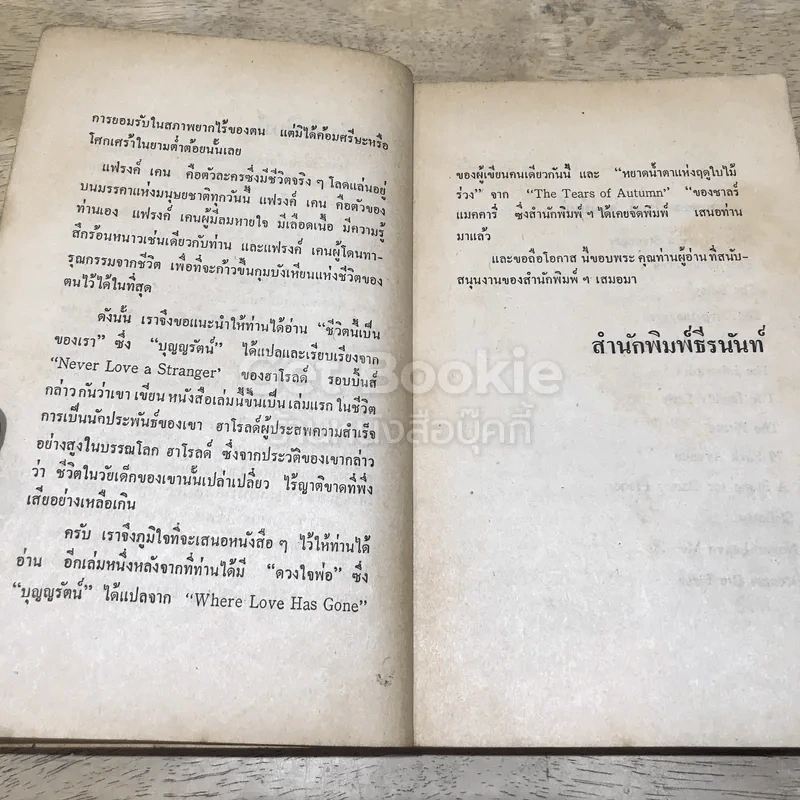 การยอมรับในสภาพยากไร้ของตน แต่มิได้ค้อมศรีษะหรือ
โศกเศร้าในยามต่ำต้อยนั้นเลย
แฟรงค์ เคน คือตัวละครซึ่งมีชีวิตจริง ๆ โลดแล่นอยู่
บนมรรคาแห่งมนุษยชาติทุกวันนี้ แฟรงค์ เคน คือตัวของ
ท่านเอง แฟรงค์ เคนผู้มีลมหายใจ มีเลือดเนื้อ มีความรู้
สึกร้อนหนาวเช่นเดียวกับท่าน และแฟรงค์ เคนผู้โดนทา-
รุณกรรมจากชีวิต เพื่อที่จะก้าวขึ้นกุมบังเหียนแห่งชีวิตของ
ตนไว้ได้ในที่สุด
ดังนั้น เราจึงขอแนะนำให้ท่านได้อ่าน “ชีวิตนี้เป็น
ของเรา” ซึ่ง “บุญญรัตน์” ได้แปลและเรียบเรียงจาก
“Never Love a Stranger’ ของฮาโรลด์ รอบบิ้นส์
กล่าวกันว่าเขาเขียนหนังสือเล่มนี้ขึ้นเป็นเล่มแรกในชีวิต
การเป็นนักประพันธ์ของเขา ฮาโรลด์ผู้ประสพความสำเร็จ
อย่างสูงในบรรณโลก ฮาโรลด์ ซึ่งจากประวัติของเขากล่าว
ว่า ชีวิตในวัยเด็กของเขานั้นเปล่าเปลี่ยว ไร้ญาติขาดที่พึ่ง
เสียอย่างเหลือเกิน
ครับ เราจึงภูมิใจที่จะเสนอหนังสือ ๆ ไว้ให้ท่านได้
อ่าน อีกเล่มหนึ่งหลังจากที่ท่านได้มี “ดวงใจพ่อ” ซึ่ง
“บุญญรัตน์” ได้แปลจาก “Where Love Has Gone”
ของผู้เขียนคนเดียวกันนี้ และ “หยาดน้ำตาแห่งฤดูใบไม้
ร่วง” จาก “The Tears of Autumn” “ของชาลร์
แมคคารี่ ซึ่งสำนักพิมพ์ ฯ ได้เคยจัดพิมพ์ เสนอท่าน
มาแล้ว
และขอถือโอกาส นี้ขอบพระ คุณท่านผู้อ่าน ที่สนับ-
สนุนงานของสำนักพิมพ์ ฯ เสมอมา
สำนักพิมพ์ธีรนันท์
Get Bookie
ร้านหนังสือบุ๊คกี้